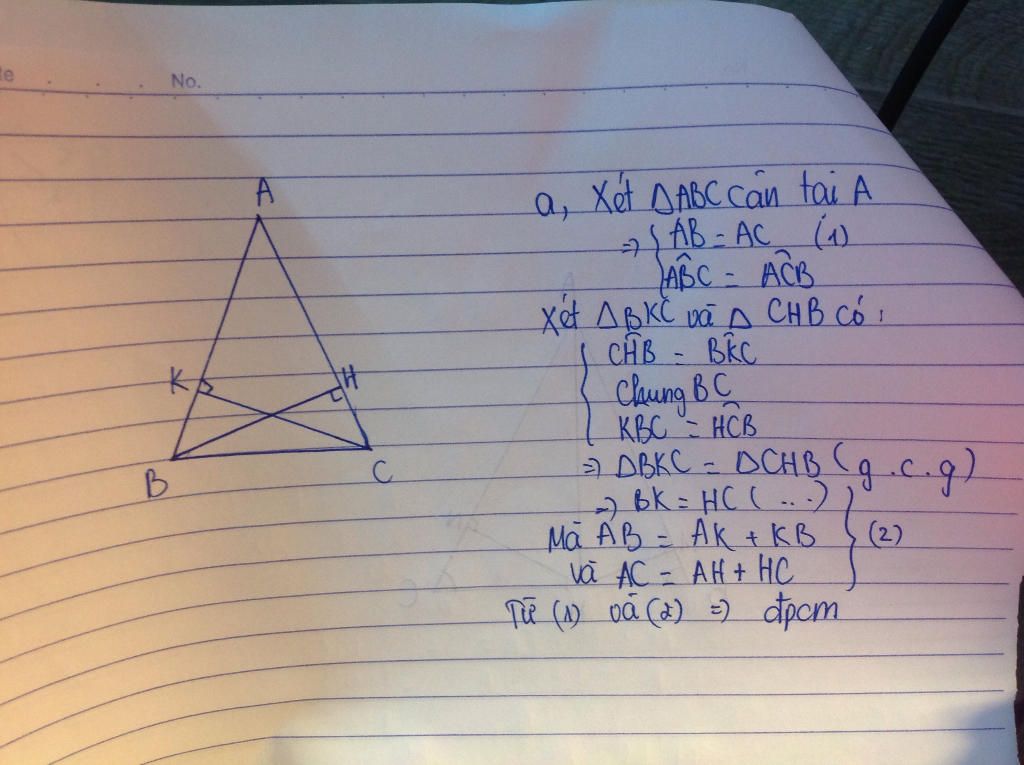 te . . . . No.
A
K
H
B
C
a, Xét ΔABC cân tại A
=> { AB = AC (1)
ABĈ = AĈB
Xét ΔBKC và Δ CHB có:
CĤB = BK̂C
Chung BC
KBC = HĈB
=> ΔBKC = ΔCHB (g.c.g)
=> BK = HC (...)
Mà AB = AK + KB } (2)
và AC = AH + HC
Từ (1) và (2) => đpcm